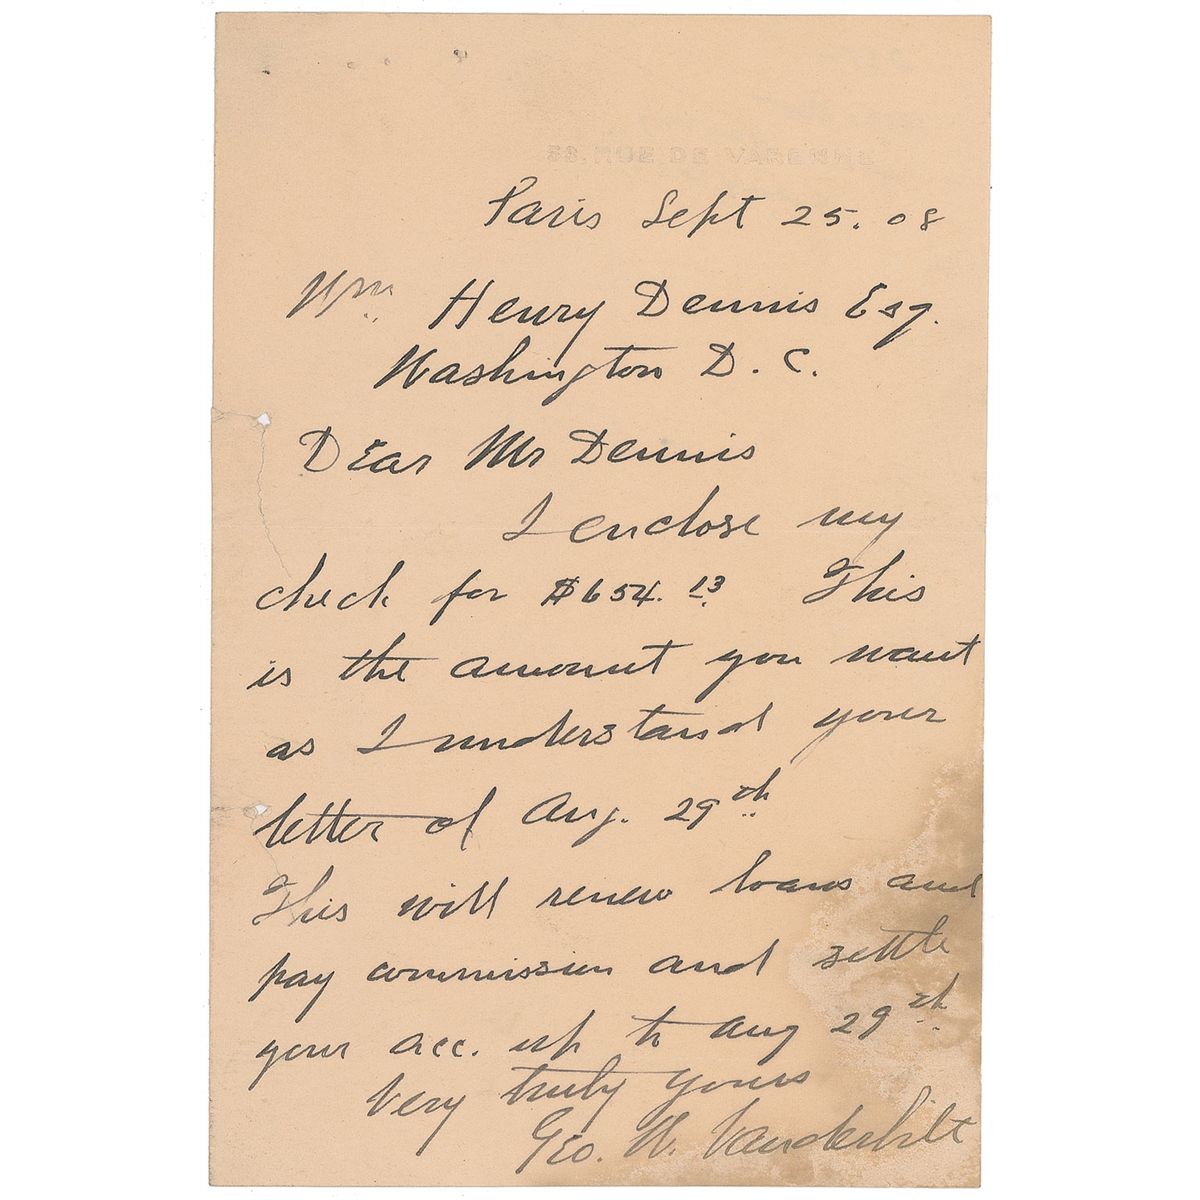 58. RUE DE VARENNE
Paris Sept 25. 08
Wm. Henry Dennis Esq.
Washington D. C.
Dear Mr Dennis
I enclose my
check for $654.13 This
is the amount you want
as I understand your
letter of Aug. 29th
This will renew loans and
pay commission and settle
your acc. up to Aug 29th
Very truly yours
Geo. W. Vanderbilt